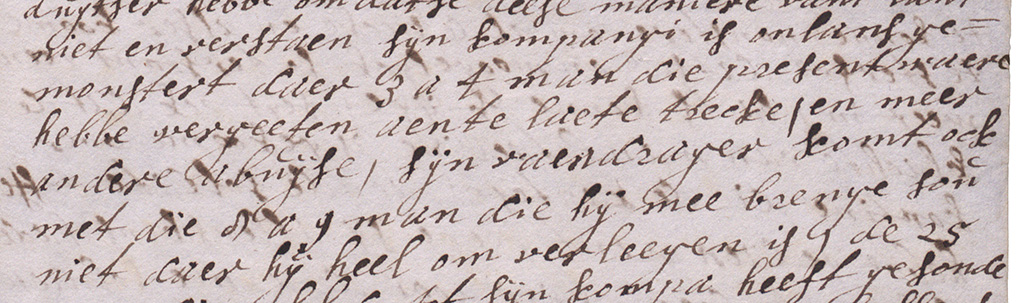 duytser hebbe om datse deese maniere van
niet en verstaen sÿn kompanyi is onlans ge=
monstert daer 3 a 4 man die present waere
hebbe vergeeten aente laete trecke, en meer
andere abuÿse, sÿn vaendrager komt ock
met die 8 a 9 man die hÿ mee brenge soú
niet daer hÿ heel om verleegen is, de 25
sÿn kompa heeft gesonde